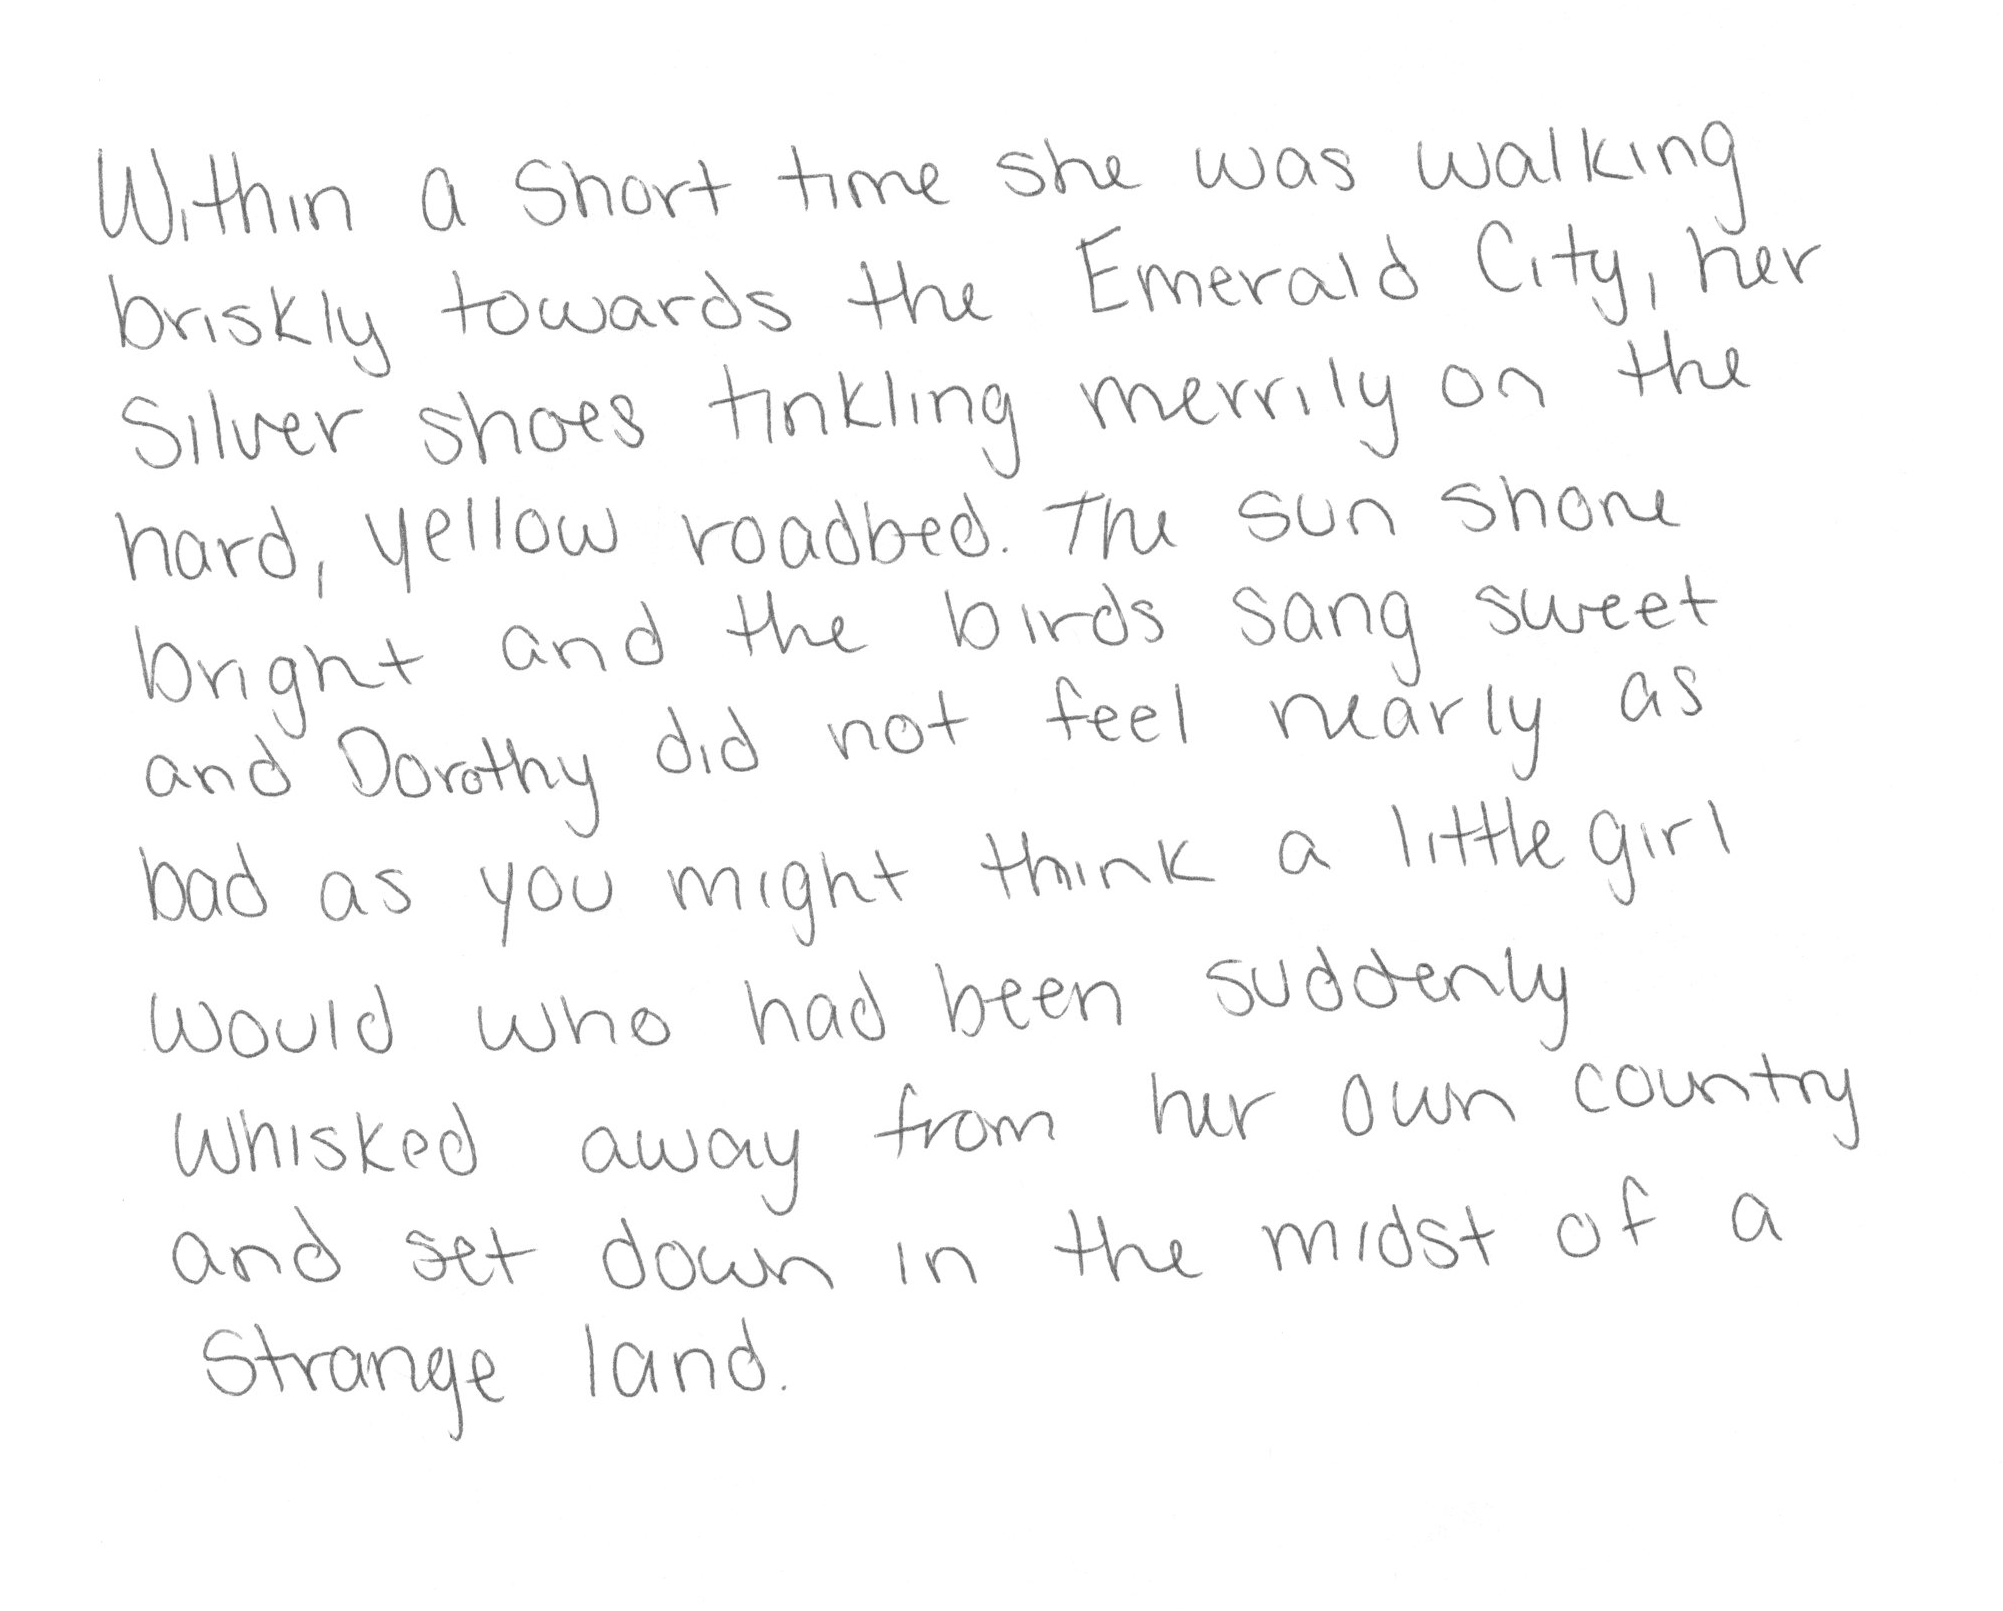 Within a short time she was walking
briskly towards the Emerald City, her
Silver shoes tinkling merrily on the
hard, yellow roadbed. The sun shone
bright and the birds sang sweet
and Dorothy did not feel nearly as
bad as you might think a little girl
would who had been suddenly
whisked away from her own country
and set down in the midst of a
strange land.